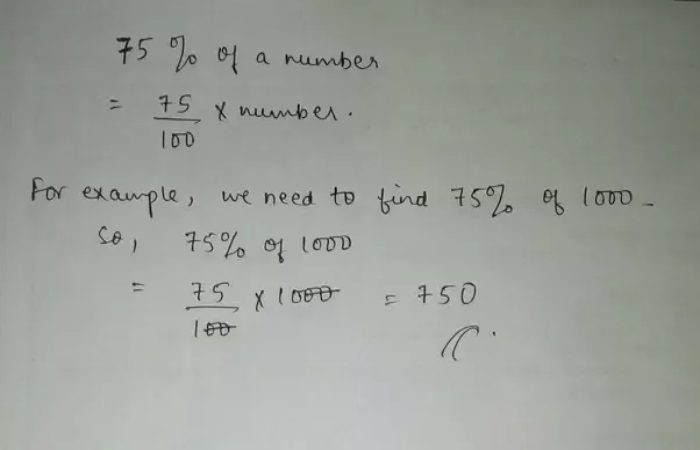 75 % of a number
= 75/100 × number.
For example, we need to find 75% of 1000.
So, 75% of 1000
= 75/100 × 1000 = 750